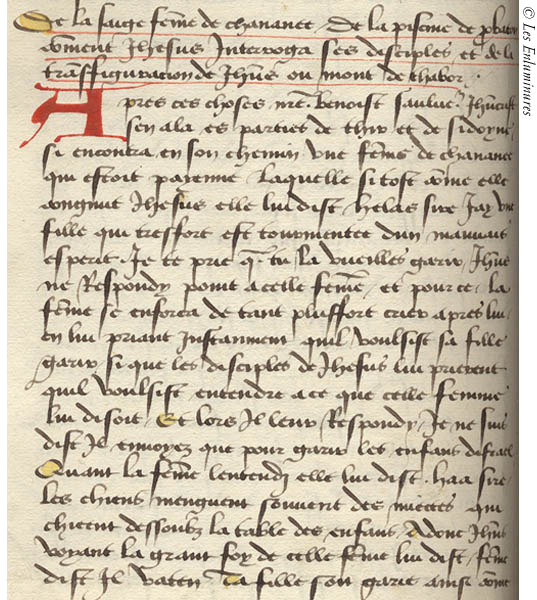 De la saige fēme de chananee. De la piscine de pbaton
Cōment Jhesus Interroga ses disciples, et de la
trāsffiguracion de Jhūs ou mont de thabor.
Apres ces choses, nrē. benoist sauluer Jhūcrist
sen ala es parties de thir et de sidoyne
si encontra en son chemin vne fēme de chananee
qui estoit payenne laquelle si tost cōme elle
congnut Jhesus elle lui dist. helas sire Jay vne
fille qui tresfort est tourmentee dun mauuais
esperit. Je te prie q̄ tu la vueilles garir, Jhūs
ne Respondy point a celle fēme, et pour ce, la
fēme se enforca de tant plusfort crier apres lui
en lui priant Instanment quil voulsist sa fille
garir, si que les disciples de Jhesus lui prierent
quil voulsist, entendre a ce que celle femme
lui disoit. Et lors Il leur Respondy, Je ne suis
dist Il, enuoyez que pour garir les enfans disrael
Quant la fēme lentendj elle lui dist. haa sire
les chiens menguent souuent des miectes qui
chieent dessoubz la table des enfans, Adonc Jhūs
voyant la grant foy de celle fēme lui dist, fēme
dist Il vaten Ta fille soit garie ainsi cōme
© Les Enluminures